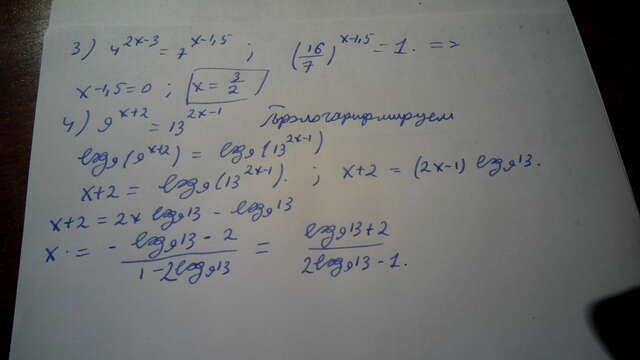 3) 4^{2x-3} = 7^{x-1,5} ; (16/7)^{x-1,5} = 1. =>
x-1,5=0 ; x = 3/2
4) 9^{x+2} = 13^{2x-1} Прологарифмируем
log₉(9^{x+2}) = log₉(13^{2x-1})
x+2 = log₉(13^{2x-1}). ; x+2 = (2x-1) log₉13.
x+2 = 2x log₉13 - log₉13
x = (-log₉13 - 2)/(1-2log₉13) = (log₉13+2)/(2log₉13-1).